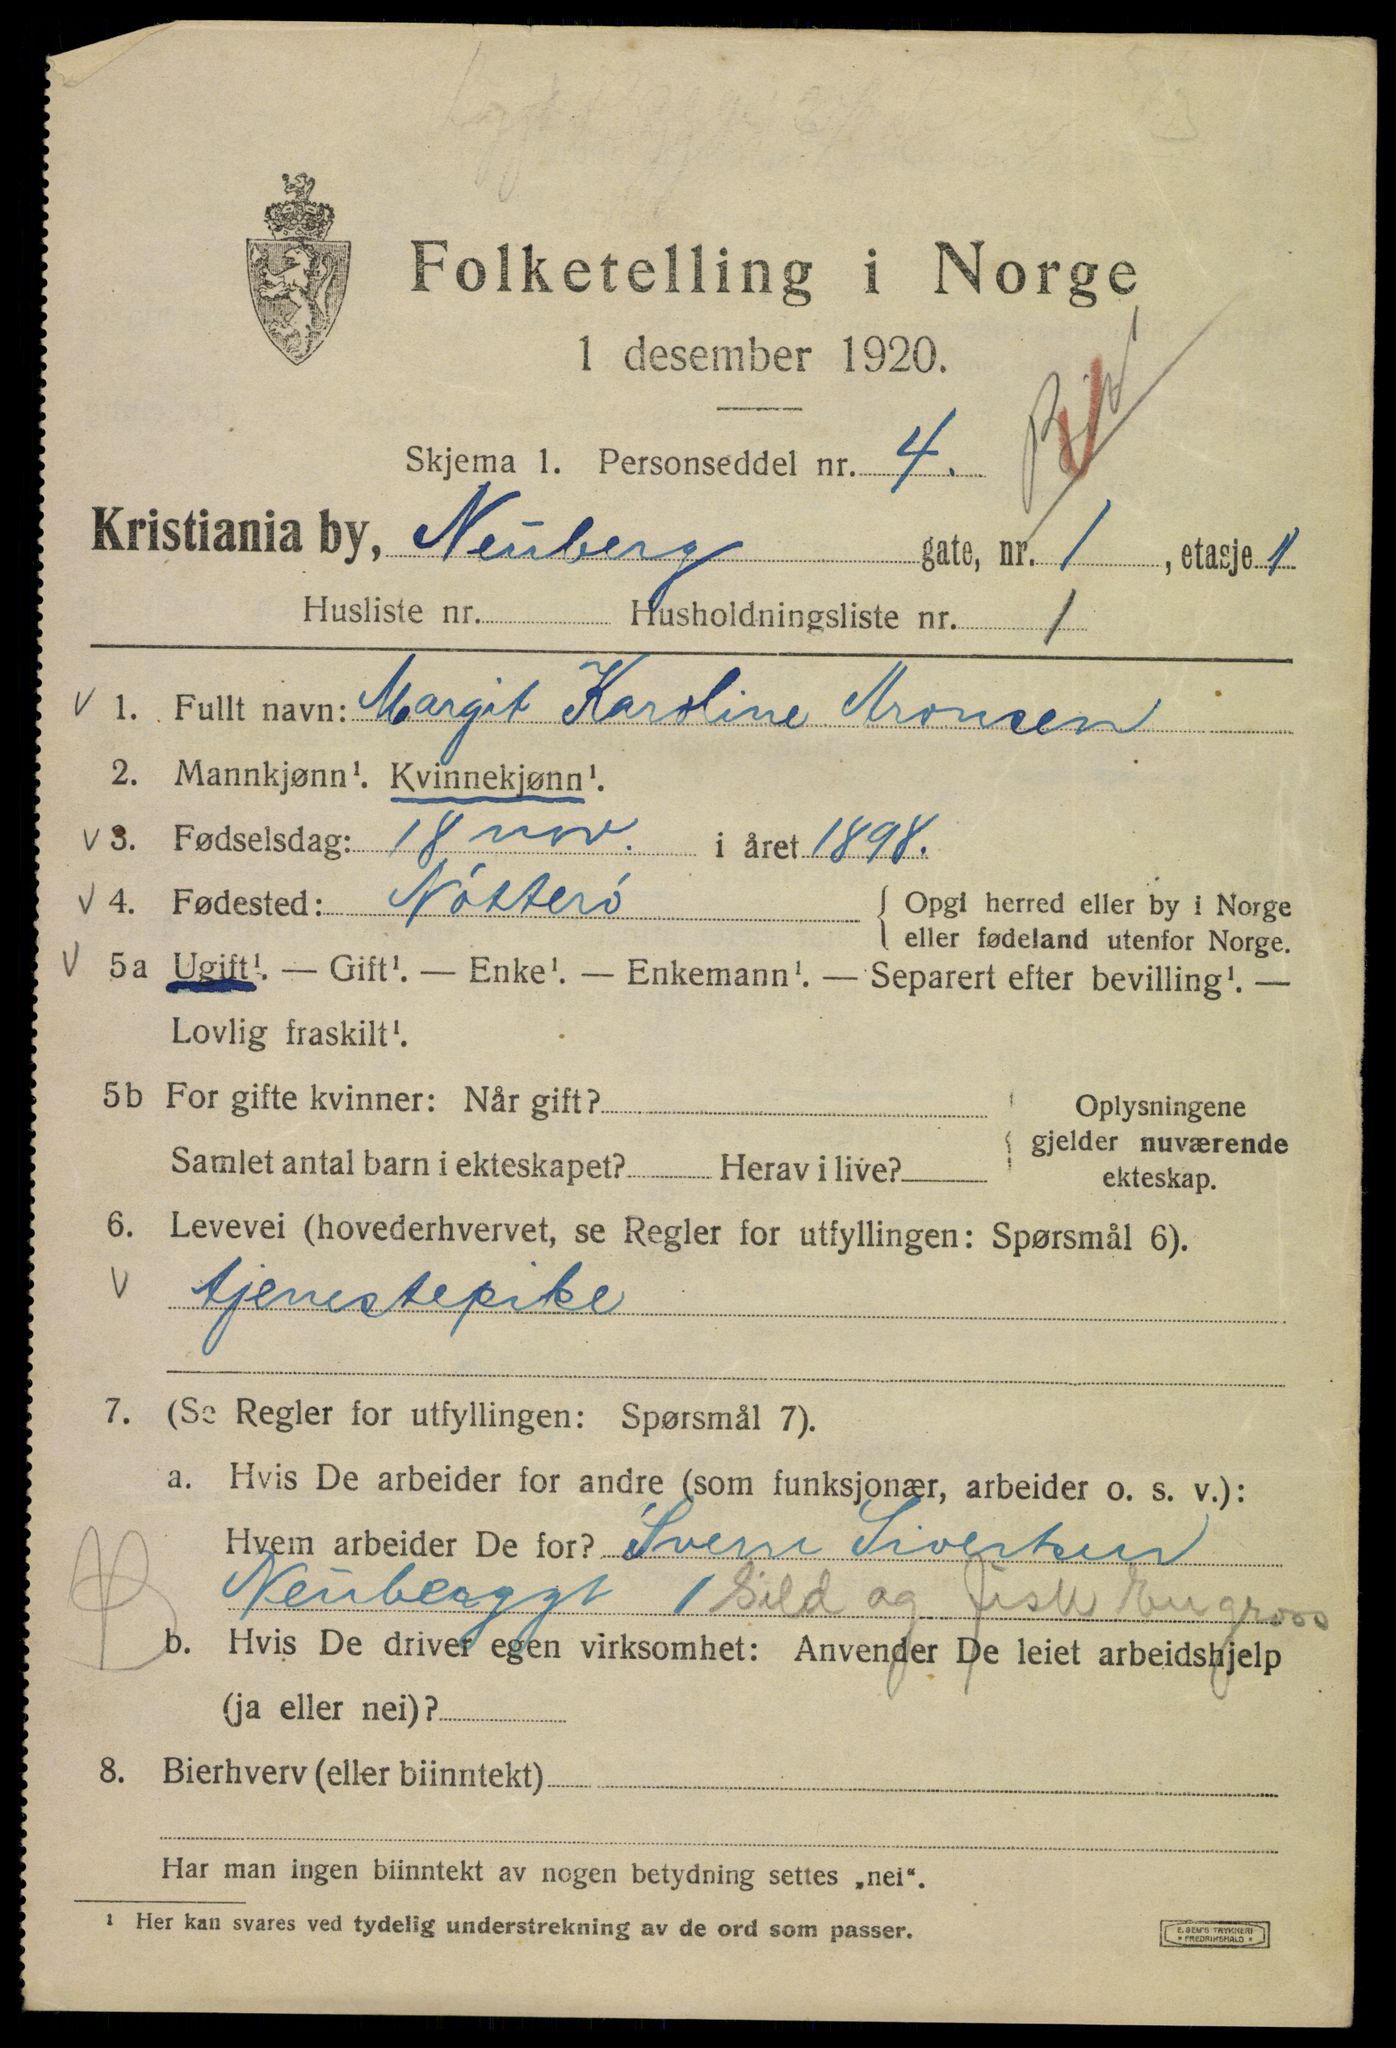 Folketelling i Norge
1 desember 1920.
Skjema 1. Personseddel nr. 4.
Kristiania by, Neuberg gate, nr. 1, etasje 1
Husliste nr. Husholdningsliste nr. 1
V 1. Fullt navn: Margit Karoline Aronsen
2. Mannkjønn¹. Kvinnekjønn¹.
V 3. Fødselsdag: 18 nov. i året 1898.
V 4. Fødested: Nótteró { Opgi herred eller by i Norge
eller fødeland utenfor Norge.
V 5a Ugift¹. — Gift¹. — Enke¹. — Enkemann¹. — Separert efter bevilling¹. —
Lovlig fraskilt¹.
5b For gifte kvinner: Når gift? { Oplysningene
gjelder nuværende
ekteskap.
Samlet antal barn i ekteskapet? Herav i live?
6. Levevei (hovederhvervet, se Regler for utfyllingen: Spørsmål 6).
V tjenestepike
7. (Se Regler for utfyllingen: Spørsmål 7).
a. Hvis De arbeider for andre (som funksjonær, arbeider o. s. v.):
Hvem arbeider De for? Sverre Sivertsen
Neuberggt 1 Sild og fisk Engross
b. Hvis De driver egen virksomhet: Anvender De leiet arbeidshjelp
(ja eller nei)?
8. Bierhverv (eller biinntekt)
Har man ingen biinntekt av nogen betydning settes „nei“.
¹ Her kan svares ved tydelig understrekning av de ord som passer.
E. SEM'S TRYKKERI
* FREDRIKSHALD *